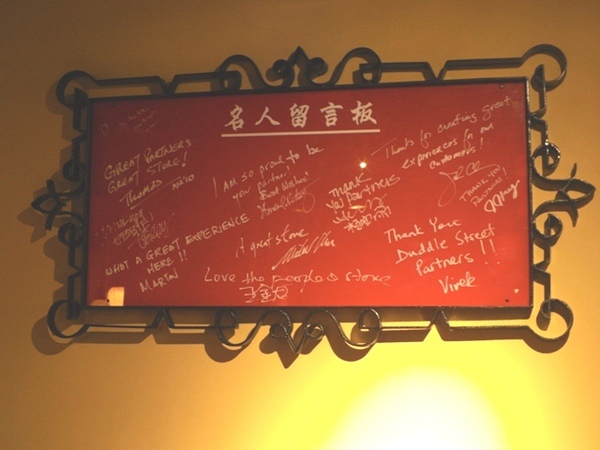 名人留言板
GREAT PARTNERS
GREAT STORE!
THOMAS
I AM SO proud to be
your partner!
Best Wishes!
Thank
you Partners
Thanks for creating great
experiences for our
customers!
THANK YOU
WHAT A GREAT EXPERIENCE
HERE!!
MARTIN
A great store
Love the people & store
Thank You
Duddle Street
Partners!!
Vivek